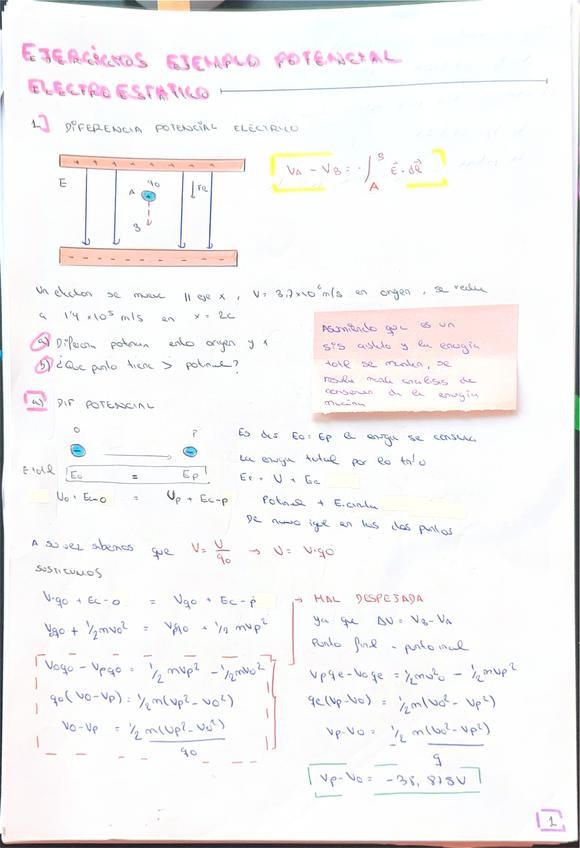 EJERCICIOS EJEMPLO POTENCIAL
ELECTROESTÁTICO
1] DIFERENCIA POTENCIAL ELÉCTRICO
+ + + + + + + +
E
A
q0
Fe
B
- - - - - - - - -
VA - VB = - ∫ A B E · dl
Un electron se mueve || eje x, V = 3,7x10⁶ m/s en origen, se reduce
a 1'4 x10⁵ m/s en x = 2c
a) Diferen potencia entre origen y
b) ¿Que punto tiene > potencial?
Asumiendo que es un
sis aislado y la energía
total se mantien, se
resuelve analisis de
conserva de la energia
mecánica
a) DIF POTENCIAL
O P
E total E0 = Ep
U0 + Ec-0 = Up + Ec-p
Es decir E0 = Ep la energía se conserva
La energía total por lo tnto
Et = U + Ec
Potencial + E.cinética
De nuevo igual en los dos puntos
A su vez sabemos que V = U/q0 → U = V·q0
SUSTITUIMOS
V·q0 + Ec-0 = Vq0 + Ec-p
Vq0 + 1/2 mv0² = Vpq0 + 1/2 mvp²
V0q0 - Vpq0 = 1/2 mvp² - 1/2 mv0²
q0(V0-Vp) = 1/2 m(vp² - v0²)
V0-Vp = 1/2 m(vp² - v0²)
q0
→ MAL DESPEJADA
ya que ΔV = VB - VA
Punto final - punto inicial
Vpqe - V0qe = 1/2 mv0² - 1/2 mvp²
qe(Vp-V0) = 1/2 m(v0² - vp²)
Vp-V0 = 1/2 m(v0² - vp²)
q
Vp-V0 = -38, 878V
1